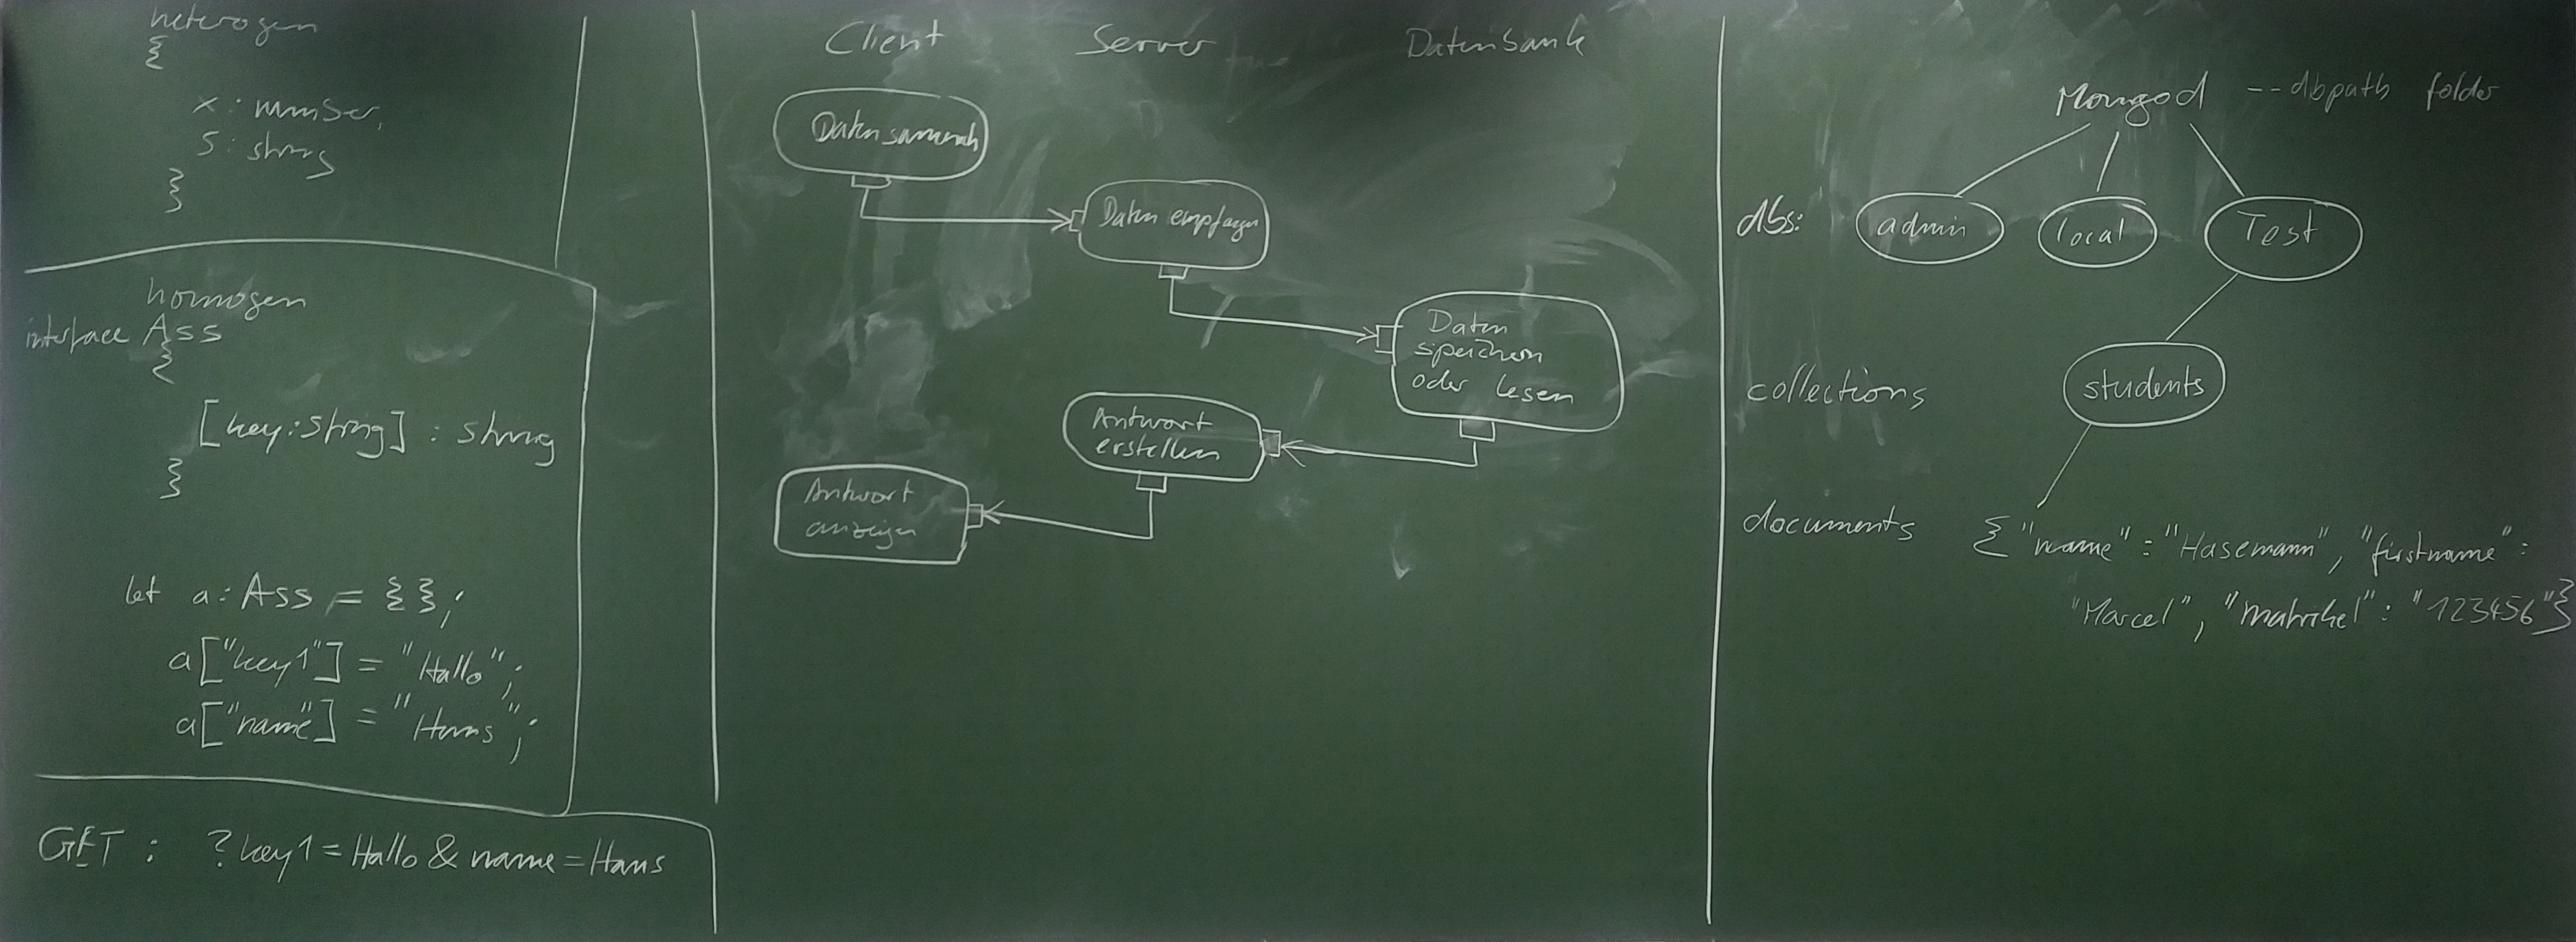 heterogen
{
x: number,
s: string
}
homogen
interface Ass
{
[key:string] : string
}
let a: Ass = {};
a["key1"] = "Hallo";
a["name"] = "Hans";
GET : ?key1=Hallo&name=Hans
Client Server Datenbank
Daten sammeln
Daten empfangen
Daten
speichern
oder lesen
Antwort
erstellen
Antwort
anzeigen
Mongod --dbpath folder
dbs: admin local Test
collections students
documents {"name" : "Hasemann", "firstname" :
"Marcel", "matrikel" : "123456"}